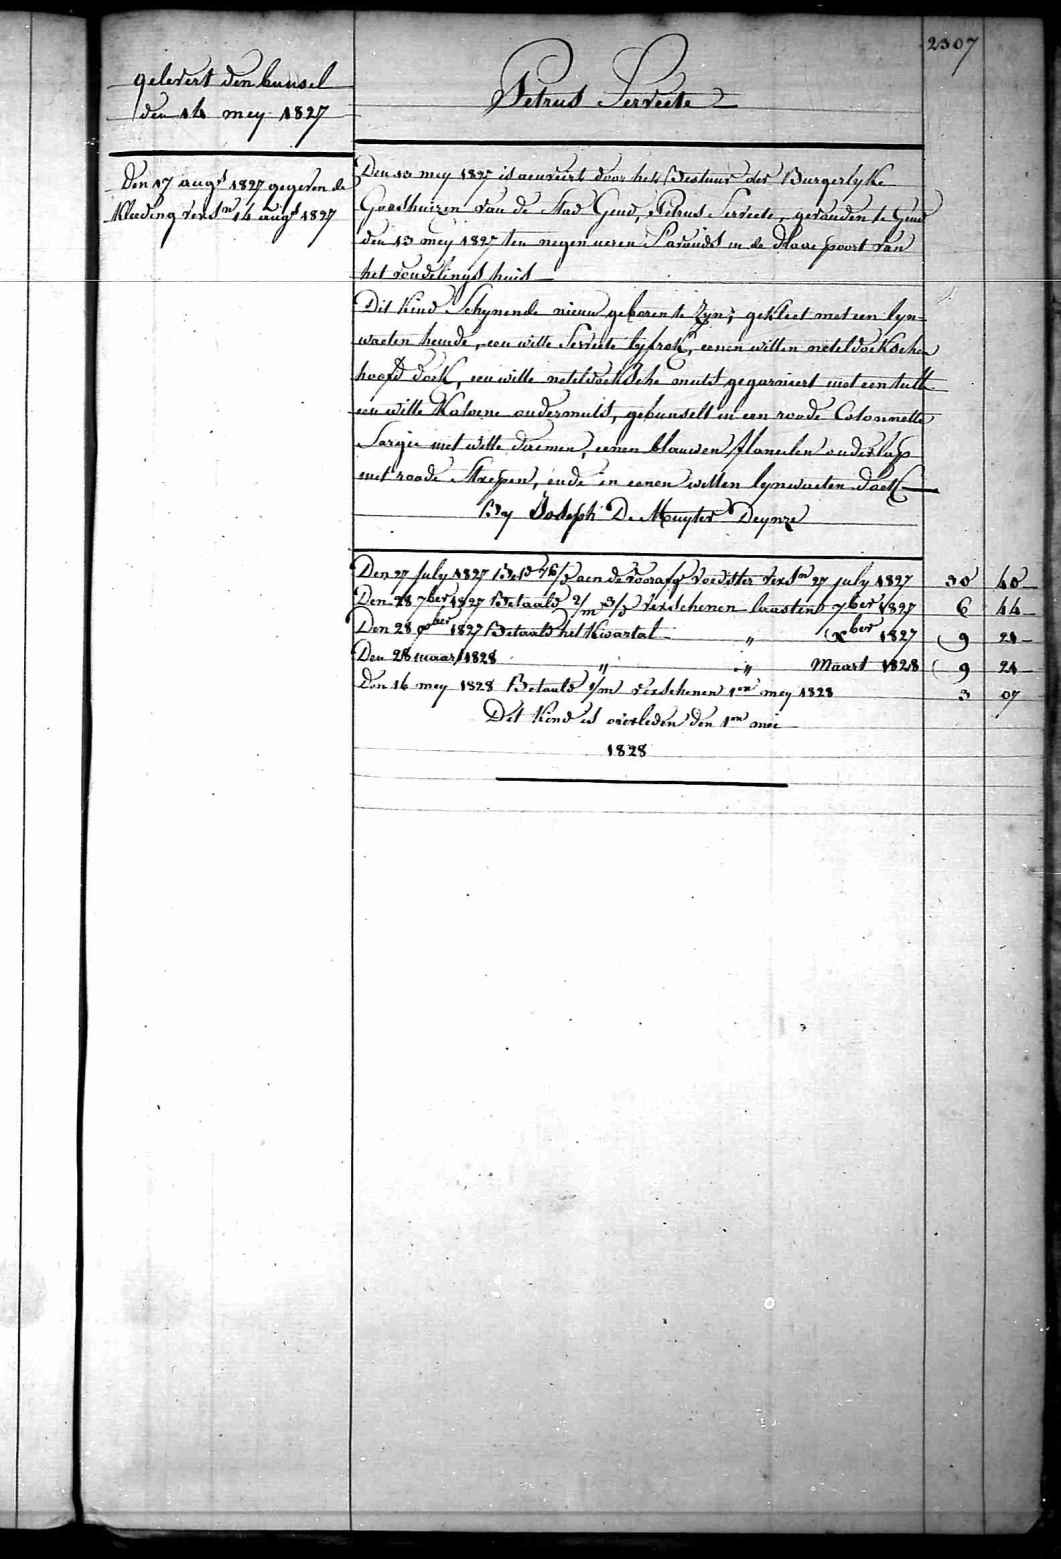 2307
gelevert den bunsel
den 14 mey 1827
Petrus Serviete
Den 17 augt 1827 gegeven de
Kleeding versn 14 augt 1827
Den 13 mey 1827 is door het Bestuur der Burgerlyke
Godshuizen van de Stad Gend, Petrus Serviete, gevonden te Gend
den 13 mey 1827 ten negen ueren S'avonds in de poort van
het vondelings huis
Dit Kind Schynende nieuw geboren te Zyn; gekleet met een lyn-
waeten hemde, een witte Serviete lyfrok, eenen witten neteldoekschen
hoofd doek, een witte neteldoeksche muts gegarniert met een tull
een witte Katoene ondermuts, gebunselt in een roode Cotonnette
Sargie met witte daemen, eenen blauwen flanelen onderlap
met roode Strepen, ende in eenen witten lynwaeten doek
By Joseph De Muyter Deynze
Den 27 july 1827 aen de voorafg Voedster versn 27 july 1827 30 40
Den 28 7ber 1827 Betaald 2/m 3/d verschenen laasten 7ber 1827 6 44
Den 28 xber 1827 Betaald het Kwartal " xber 1827 9 21
Den 28 maart 1828 " " Maart 1828 9 21
Den 16 mey 1828 Betaald 1/m verschenen 1en mey 1828 3 07
Dit Kind is overleden den 1en mei
1828